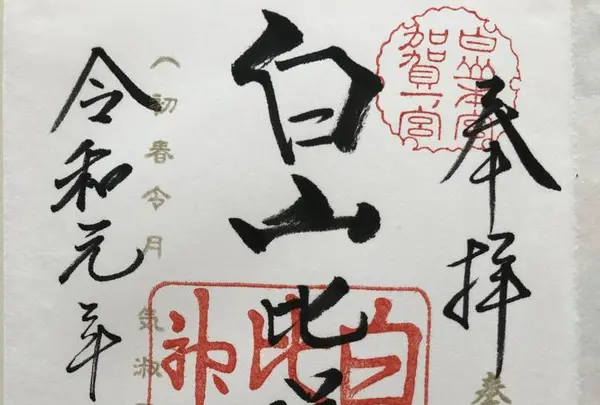 奉拝
白山本宮
加賀一宮
白山比
白比神
(初春令月 気淑
令和元年